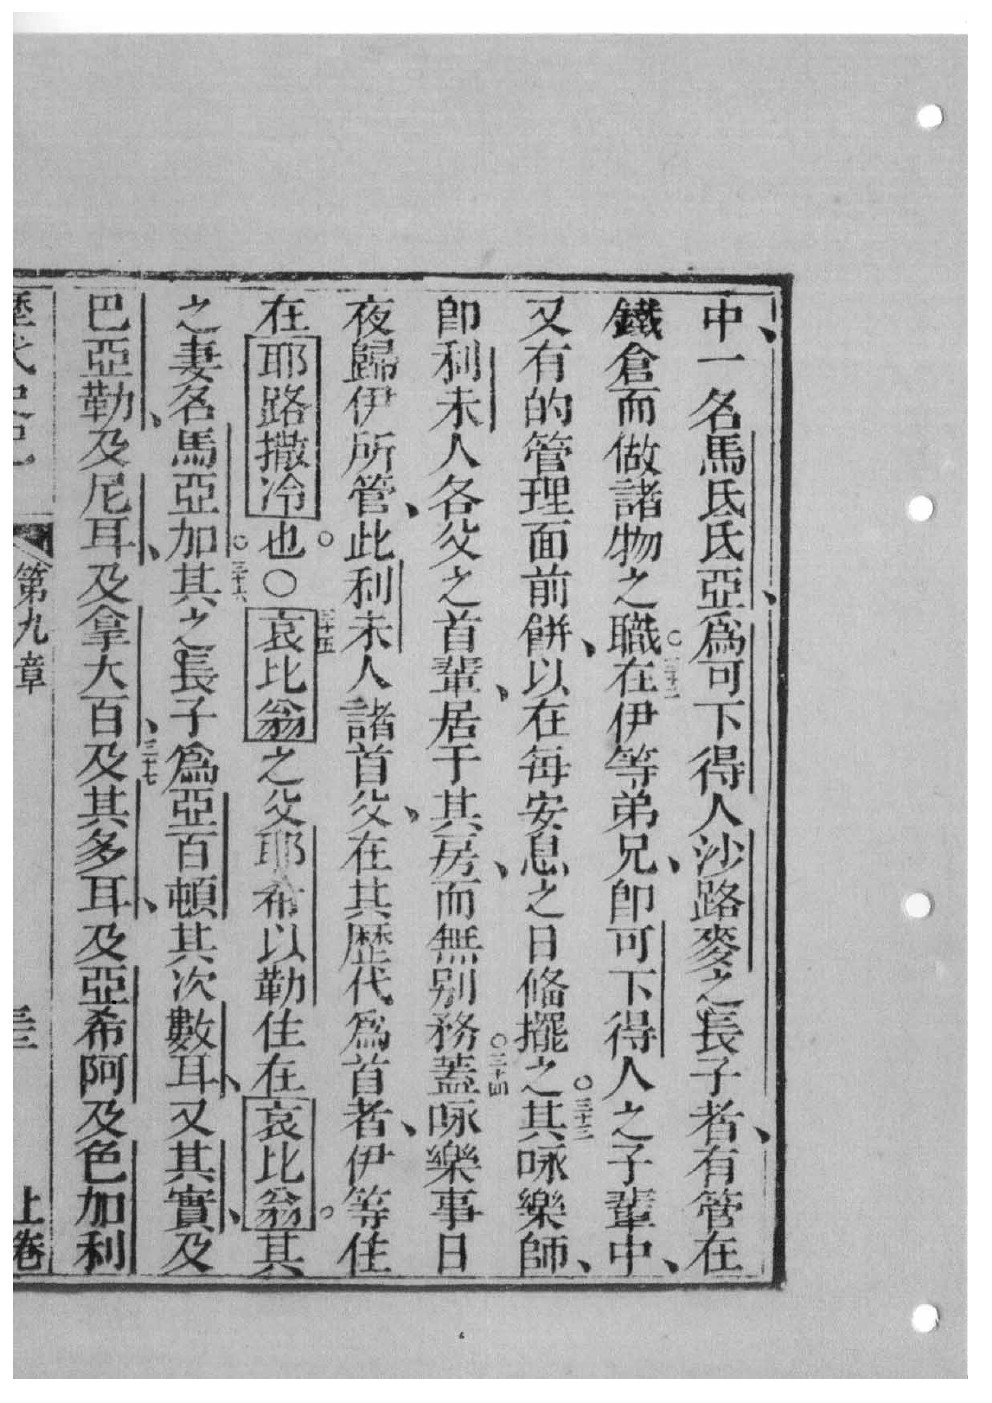 中、一名馬氐氐亞、爲可下得人沙路麥之長子者、有管在
鐵倉而做諸物之職。三十二在伊等弟兄、卽可下得人之子輩中、
又有的管理面前餅、以在每安息之日脩擺之。三十三其咏樂師、
卽利未人各父之首輩、居于其房、而無别務。三十四蓋咏樂事日
夜歸伊所管、此利未人諸首父、在其歷代爲首者、伊等住
在耶路撒冷也。○三十五哀比翁之父耶希以勒住在哀比翁。其
之妻名馬亞加。三十六其之長子爲亞百頓其次數耳、又其實、及
巴亞勒、及尼耳、及拿大百、三十七及其多耳、及亞希阿及色加利
第九章 上卷